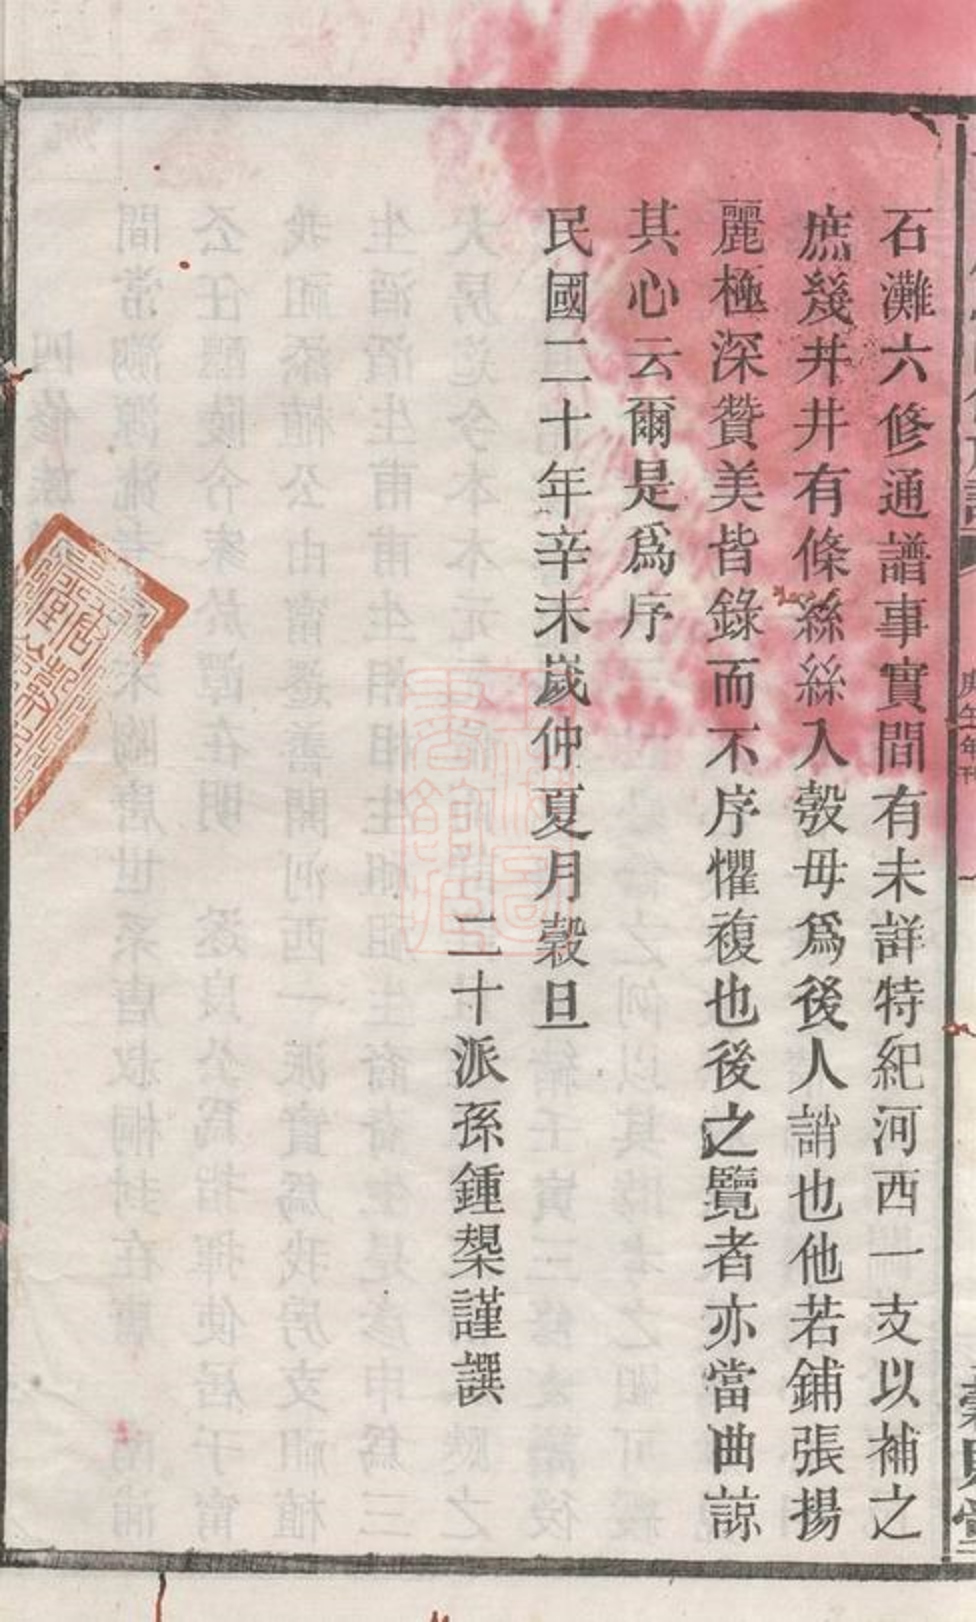 石灘六修通譜事實間有未詳特紀河西一支以補之
庶幾井井有條絲絲入彀毋為後人誚也他若鋪張揚
麗極深贊美皆錄而不序懼複也後之覽者亦當曲諒
其心云爾是為序
民國二十年辛未歲仲夏月穀旦
二十派孫鍾槼謹譔
庚午年刊